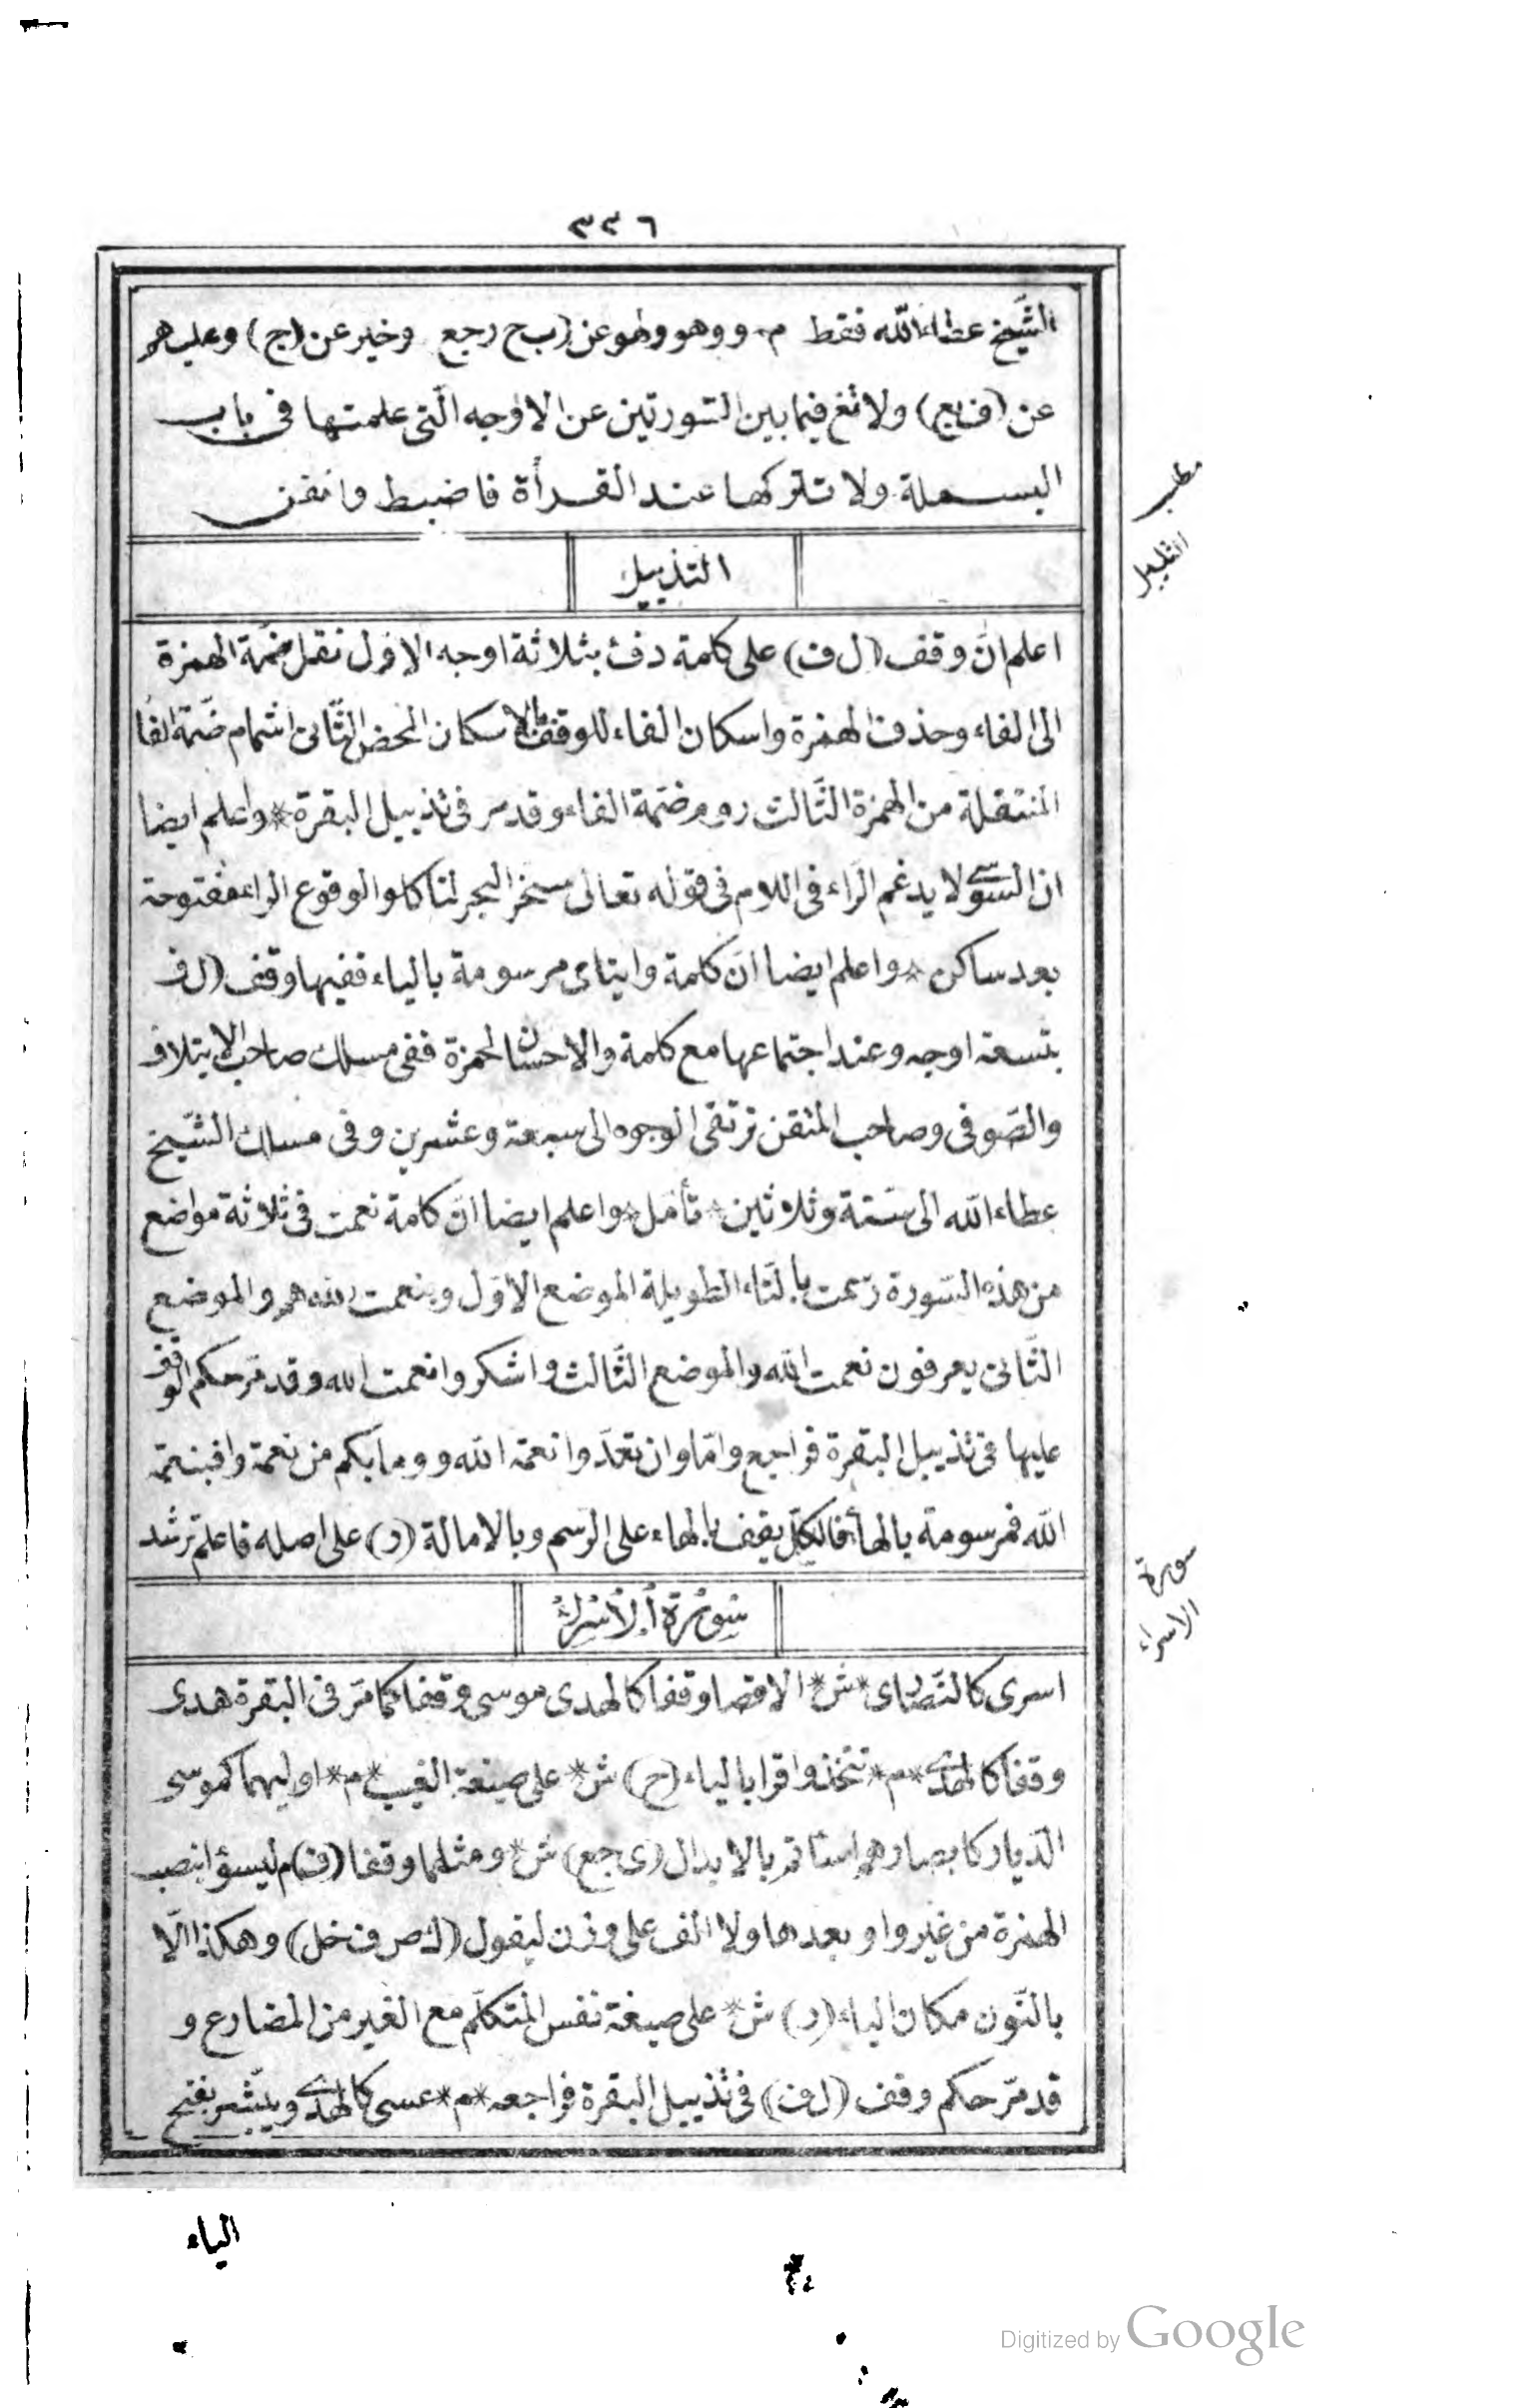 ٣٣٦
الشّيخ عطاءالله فقط م وو هو ولهو عن (ب ح ر جع وخير عن (ج) وعليهم
عن (ف يع) ولا تغ فيما بين السّورتين عن الاوجه الّتى علمتها فى باب
البسملة ولا تتركها عند القرأة فاضبط واتقن
مطلب
التذييل
التذييل
اعلم انّ وقف (ل ف) على كلمة دفء بثلاثة اوجه الاوّل نقل ضمّة الهمزة
الى الفاء وحذف الهمزة واسكان الفاء للوقف بالاسكان المحض الثّانى اشمام ضمّة الفا
المنتقلة من الهمزة الثّالث روم ضمّة الفاء وقد مر فى تذييل البقرة * واعلم ايضا
ان السّوسى لا يدغم الرّاء فى اللام فى قوله تعالى سخر البحر لتأكلوا لوقوع الراء مفتوحة
بعد ساكن * واعلم ايضا انّ كلمة وايتاى مرسومة بالياء ففيها وقف (ل ف
بتسعة اوجه وعند اجتماعها مع كلمة والاحسان لحمزة ففى مسلك صاحب الايتلاف
والصّوفى وصاحب المتقن ترتقى الوجوه الى سبعة وعشرين وفى مسلك الشّيخ
عطاءالله الى ستّة وثلاثين * تأمل * واعلم ايضا انّ كلمة نعمت فى ثلاثة مواضع
من هذه السّورة رسمت بالتاء الطويلة الموضع الاوّل وبنعمت الله هم والموضع
الثّانى يعرفون نعمت الله والموضع الثّالث واشكروا نعمت الله وقد مرّ حكم الوقف
عليها فى تذييل البقرة فراجع وامّا وان تعدّوا نعمة الله و وما بكم من نعمة و افبنعمة
الله فمرسومة بالهاء فالكلّ يقف بالهاء على الرّسم وبالامالة (ر) على اصله فاعلم ترشد
سورة
الاسراء
سورة الاسراء
اسرى كالنّصارى * ش * الاقصا وقفا كالهدى موسى وقفا كما مرّ فى البقرة هدى
وقفا كالهدى * م * تتّخذوا قرا بالياء (ح) ش * على صيغة الغيب * م * اوليهما كموسى
الدّيار كابصارهم اسأتم بالابدال (ى جع) ش * ومثلهما وقفا (ف) م ليسؤا بنصب
الهمزة من غير واو بعدها ولا الف على وزن ليقول (ك ص ف خل) وهكذا الّا
بالنّون مكان الياء (ر) ش * على صيغة نفس المتكلّم مع الغير من المضارع و
قد مرّ حكم وقف (ل ف) فى تذييل البقرة فراجعه * م * عسى كالهدى ويبشّر بفتح
الياء
Digitized by Google